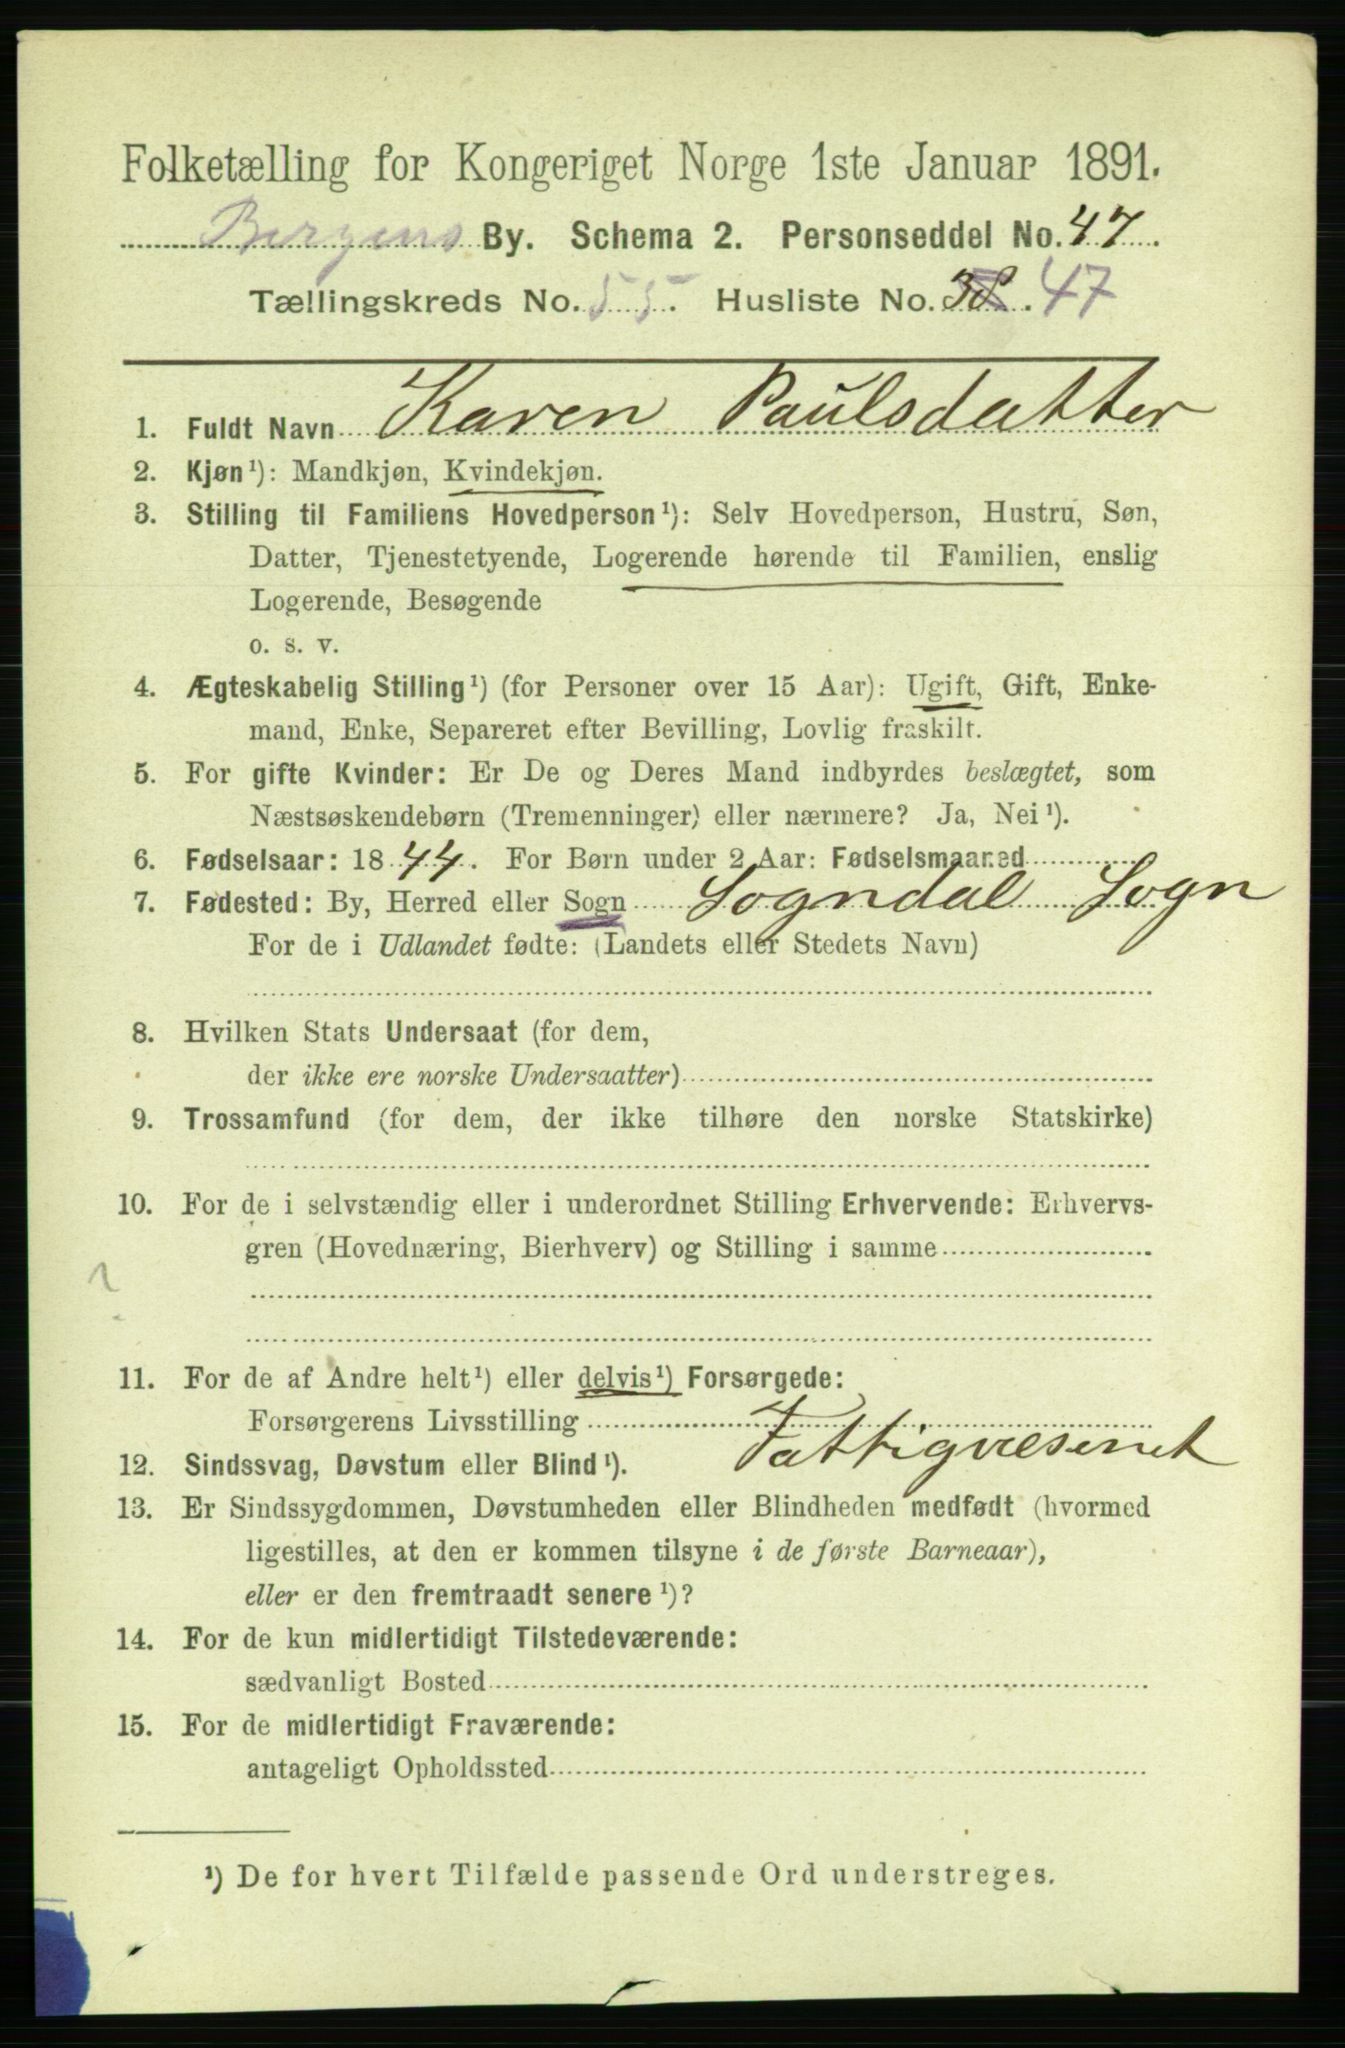 Folketælling for Kongeriget Norge 1ste Januar 1891.
Bergens By. Schema 2. Personseddel No. 47.
Tællingskreds No. 55. Husliste No. 38. 47
1. Fuldt Navn Karen Paulsdatter
2. Kjøn¹): Mandkjøn, Kvindekjøn.
3. Stilling til Familiens Hovedperson¹): Selv Hovedperson, Hustru, Søn,
Datter, Tjenestetyende, Logerende hørende til Familien, enslig
Logerende, Besøgende
o. s. v.
4. Ægteskabelig Stilling¹) (for Personer over 15 Aar): Ugift, Gift, Enke-
mand, Enke, Separeret efter Bevilling, Lovlig fraskilt.
5. For gifte Kvinder: Er De og Deres Mand indbyrdes beslægtet, som
Næstsøskendebørn (Tremenninger) eller nærmere? Ja, Nei¹).
6. Fødselsaar: 1844. For Børn under 2 Aar: Fødselsmaaned
7. Fødested: By, Herred eller Sogn Sogndal Sogn
For de i Udlandet fødte: (Landets eller Stedets Navn)
8. Hvilken Stats Undersaat (for dem,
der ikke ere norske Undersaatter)
9. Trossamfund (for dem, der ikke tilhøre den norske Statskirke)
10. For de i selvstændig eller i underordnet Stilling Erhvervende: Erhvervs-
gren (Hovednæring, Bierhverv) og Stilling i samme
11. For de af Andre helt¹) eller delvis¹) Forsørgede:
Forsørgerens Livsstilling Fattigvæsenet
12. Sindssvag, Døvstum eller Blind¹).
13. Er Sindssygdommen, Døvstumheden eller Blindheden medfødt (hvormed
ligestilles, at den er kommen tilsyne i de første Barneaar),
eller er den fremtraadt senere¹)?
14. For de kun midlertidigt Tilstedeværende:
sædvanligt Bosted
15. For de midlertidigt Fraværende:
antageligt Opholdssted
¹) De for hvert Tilfælde passende Ord understreges.